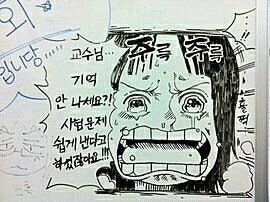 입니당~
주륵 주륵
교수님...
기억
안 나세요?!
시험문제
쉽게 낸다고
하셨잖아요!!!
훌쩍